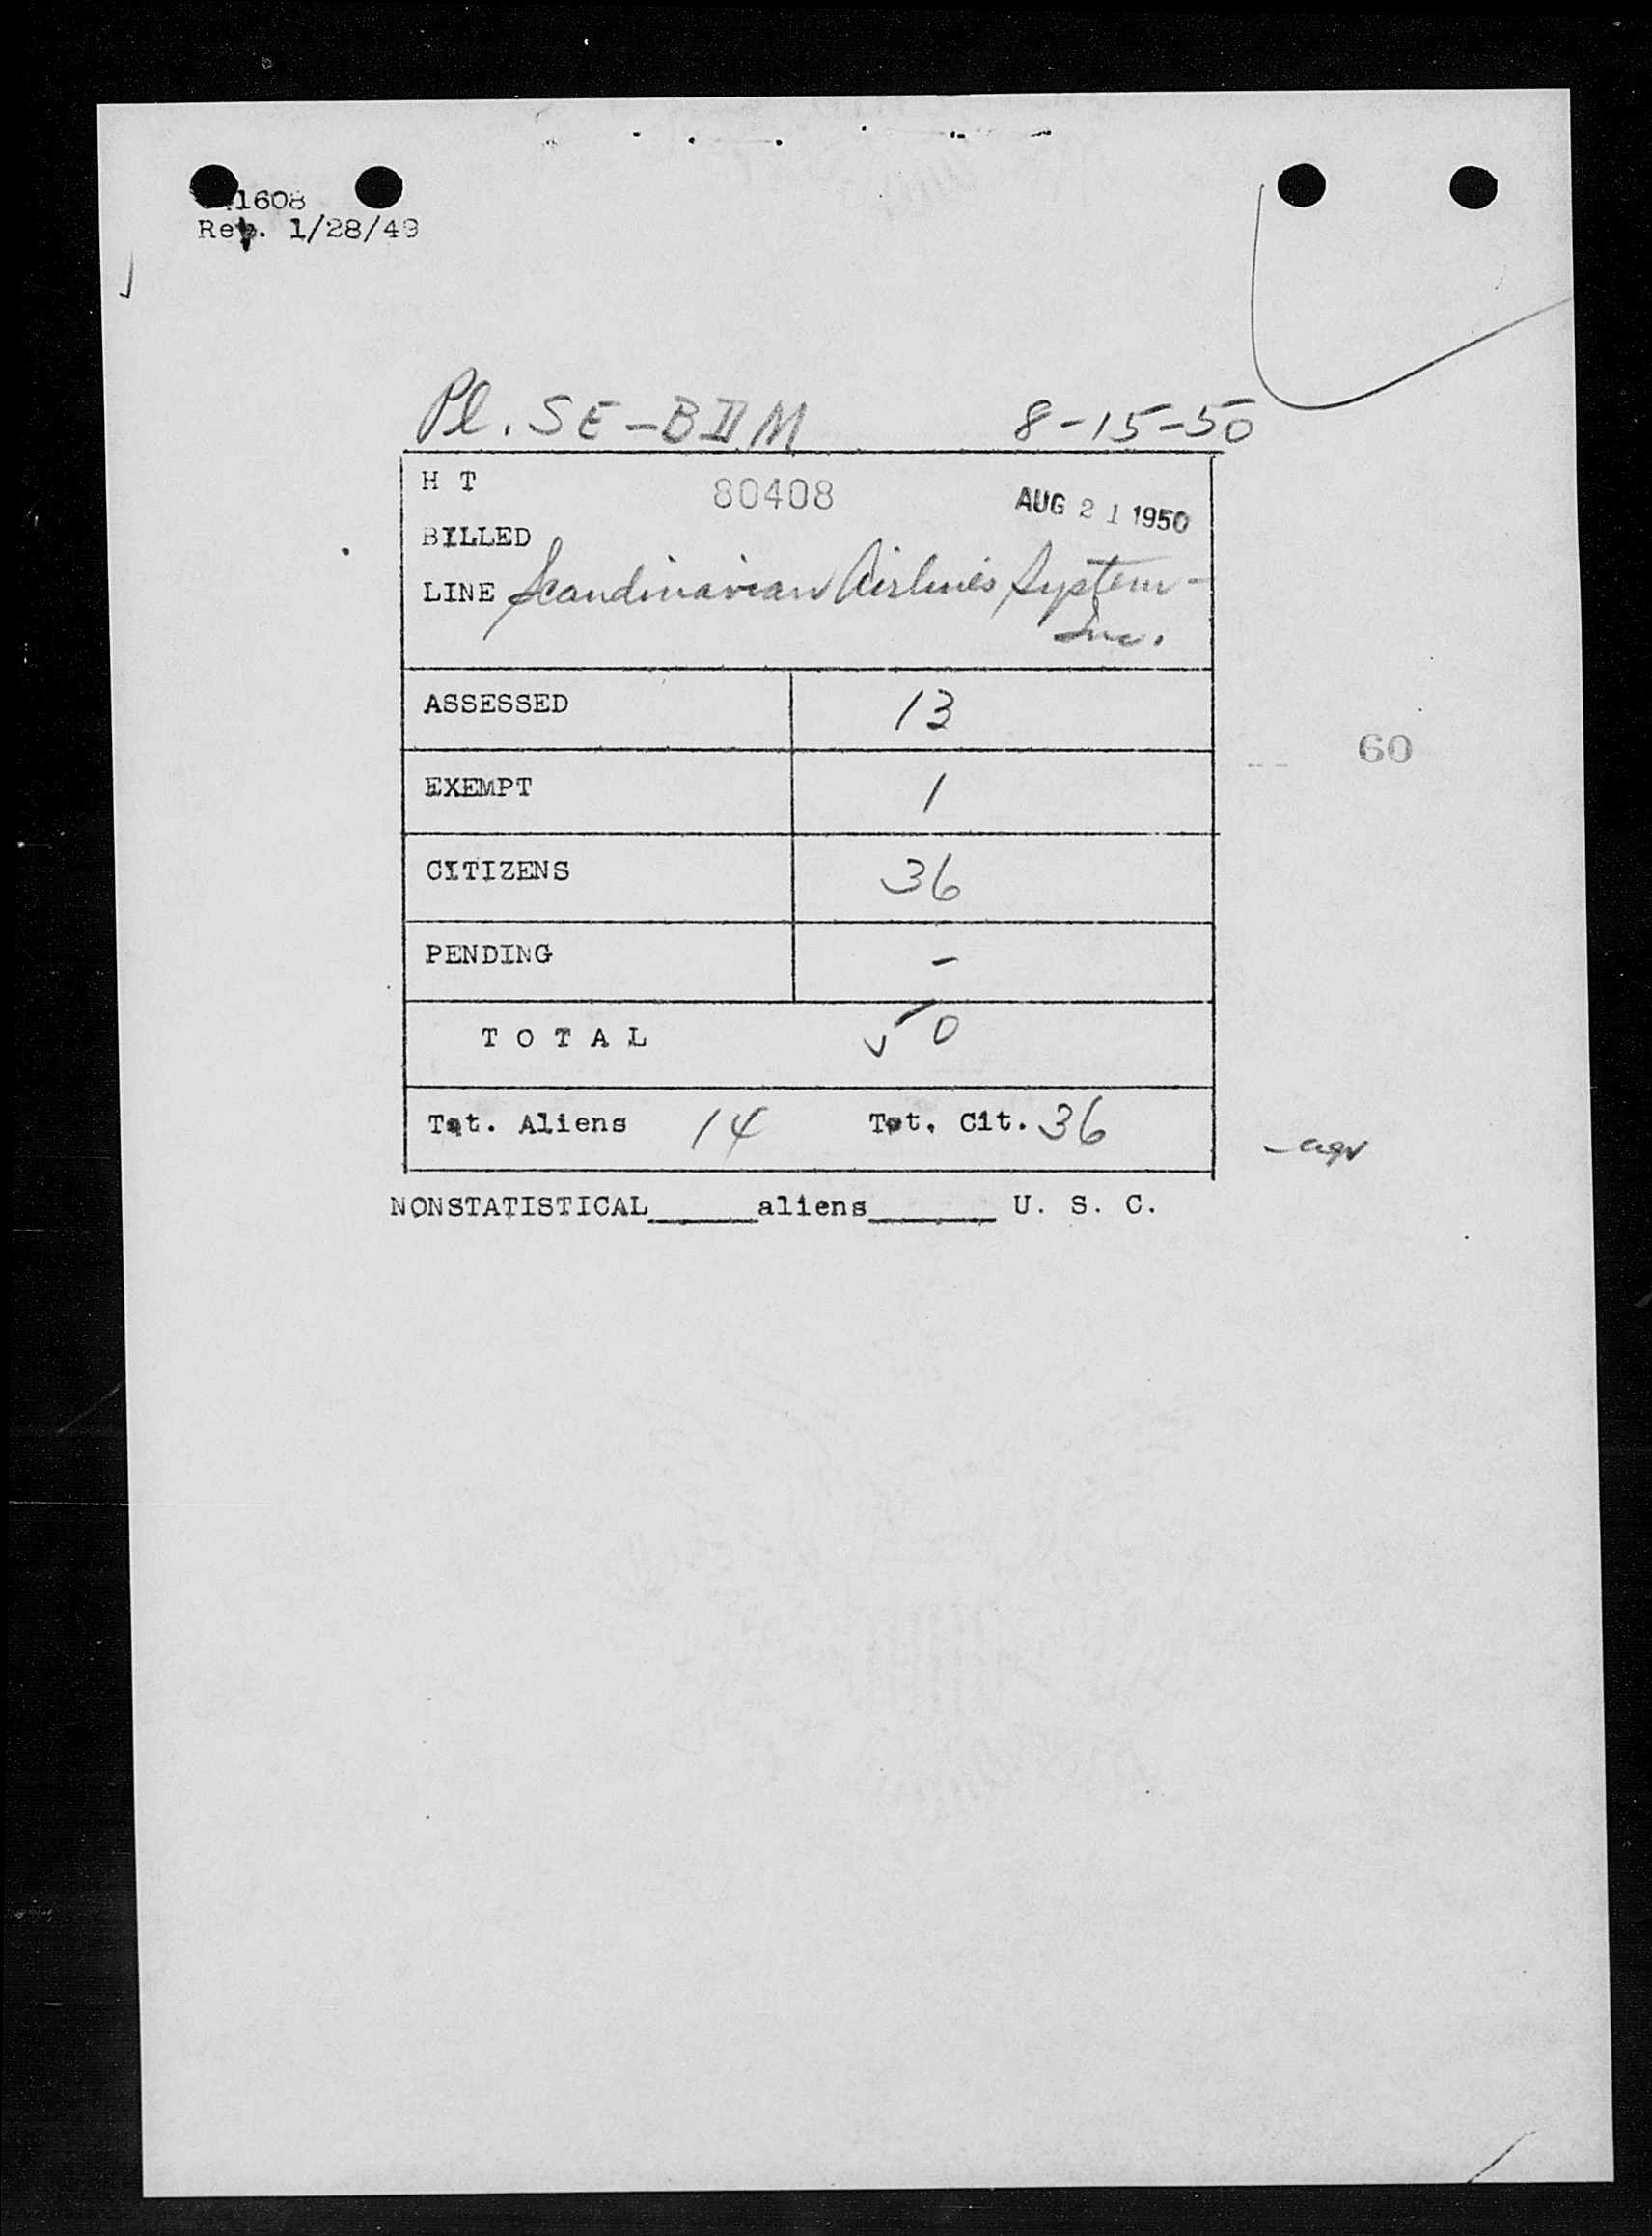 1608
Rev. 1/28/49
Pl. SE-BDM 8-15-50
H T 80408 AUG 21 1950
BILLED
LINE Scandinavian Airlines System-
Inc.
ASSESSED 13
60
EXEMPT 1
CITIZENS 36
PENDING -
TOTAL 50
Tot. Aliens 14 Tot. Cit. 36
NONSTATISTICAL aliens U. S. C.